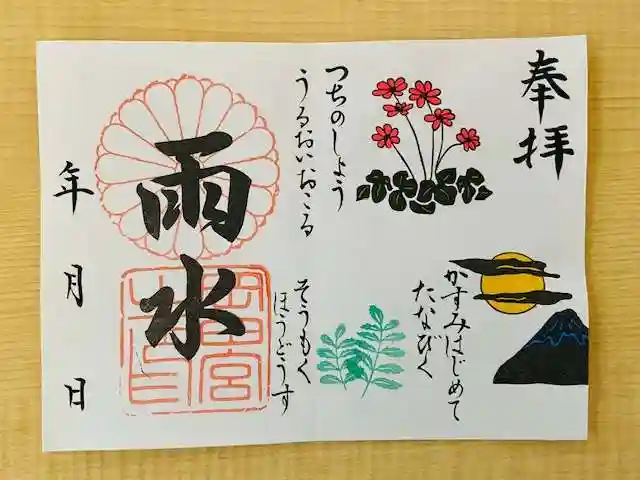 奉拝
つちのしょう
うるおいおこる
かすみはじめて
たなびく
そうもく
ほうどうす
雨水
年月日